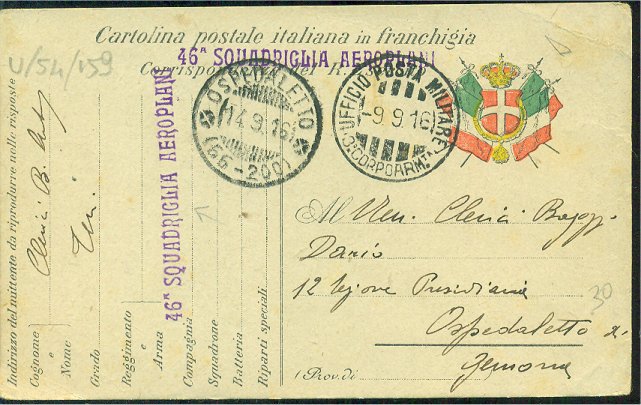 Cartolina postale italiana in franchigia
46ª SQUADRIGLIA AEROPLANI
Corrispondenza del R.
U/54/159
OSPEDALETTO
14.9.16
(66-200)
UFFICIO POSTA MILITARE
-9 9.16
3º CORPO ARMTA
46ª SQUADRIGLIA AEROPLANI
Indirizzo del mittente da riprodurre nelle risposte
Cognome
e
Nome
Clerici B.
Grado
Reggimento
e
Arma
Compagnia
Squadrone
Batteria
Riparti speciali
Al Clerici
Dario
12 Legione Presidiaria
30
Ospedaletto
Gemona
(Prov. di